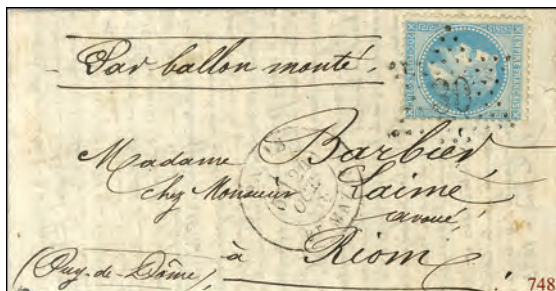 Par ballon monté.
20
Madame Barbier,
chez Monsieur Laimé
avoué,
à Riom
(Puy-de-Dôme)
748